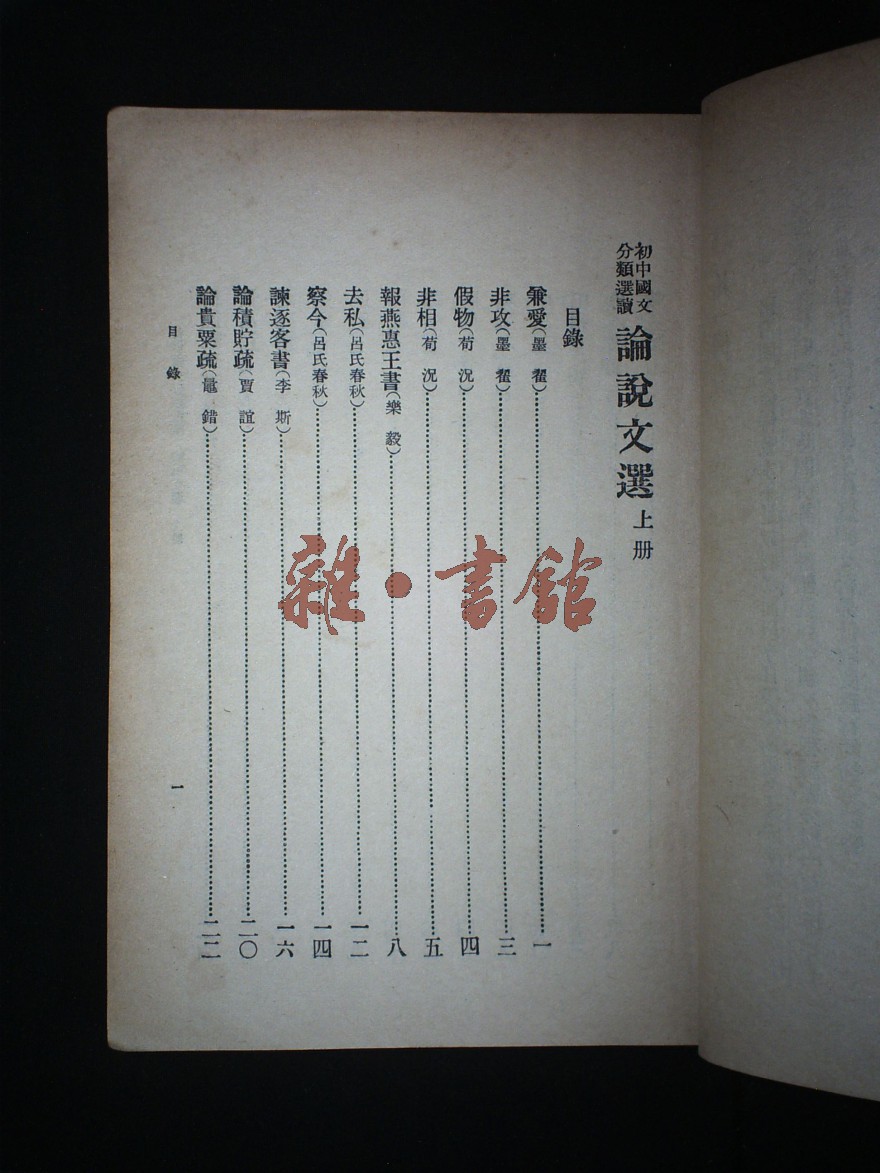 初中國文
分類選讀
論說文選 上册
目錄
兼愛（墨翟）……一
非攻（墨翟）……三
假物（荀況）……四
非相（荀況）……五
報燕惠王書（樂毅）……八
去私（呂氏春秋）……一二
察今（呂氏春秋）……一四
諫逐客書（李斯）……一六
論積貯疏（賈誼）……二〇
論貴粟疏（鼂錯）……二二
目錄
一
雜·書館